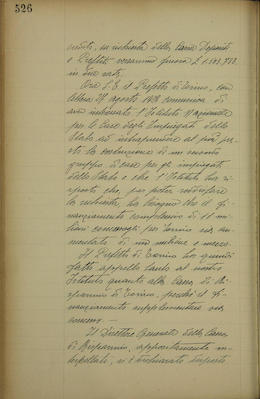 526
credito, su richiesta della Cassa Depositi
e Prestiti verranno
in due rate.
Ora S.E. il Prefetto di Torino, con
lettera 24 agosto 1928 comunica di
aver interessato l'Istituto Nazionale
per le Case degli Impiegati dello
Stato ad intraprendere al più pre-
sto la costruzione di un secondo
gruppo di case per gli impiegati
dello Stato e che l'Istituto ha ri-
sposto che, per poter soddisfare
la richiesta, ha bisogno che il fi-
nanziamento complessivo di 11 mi-
lioni per Torino sia au-
mentato di un milione e mezzo.
Il Prefetto di Torino ha quindi
fatto appello tanto al nostro
Istituto quanto alla Cassa di Ri-
sparmio di Torino, perchè il fi-
nanziamento supplementare sia
concesso. —
Il Direttore Generale della Cassa
di Risparmio, opportunamente in-
terpellato, si è dichiarato disposto